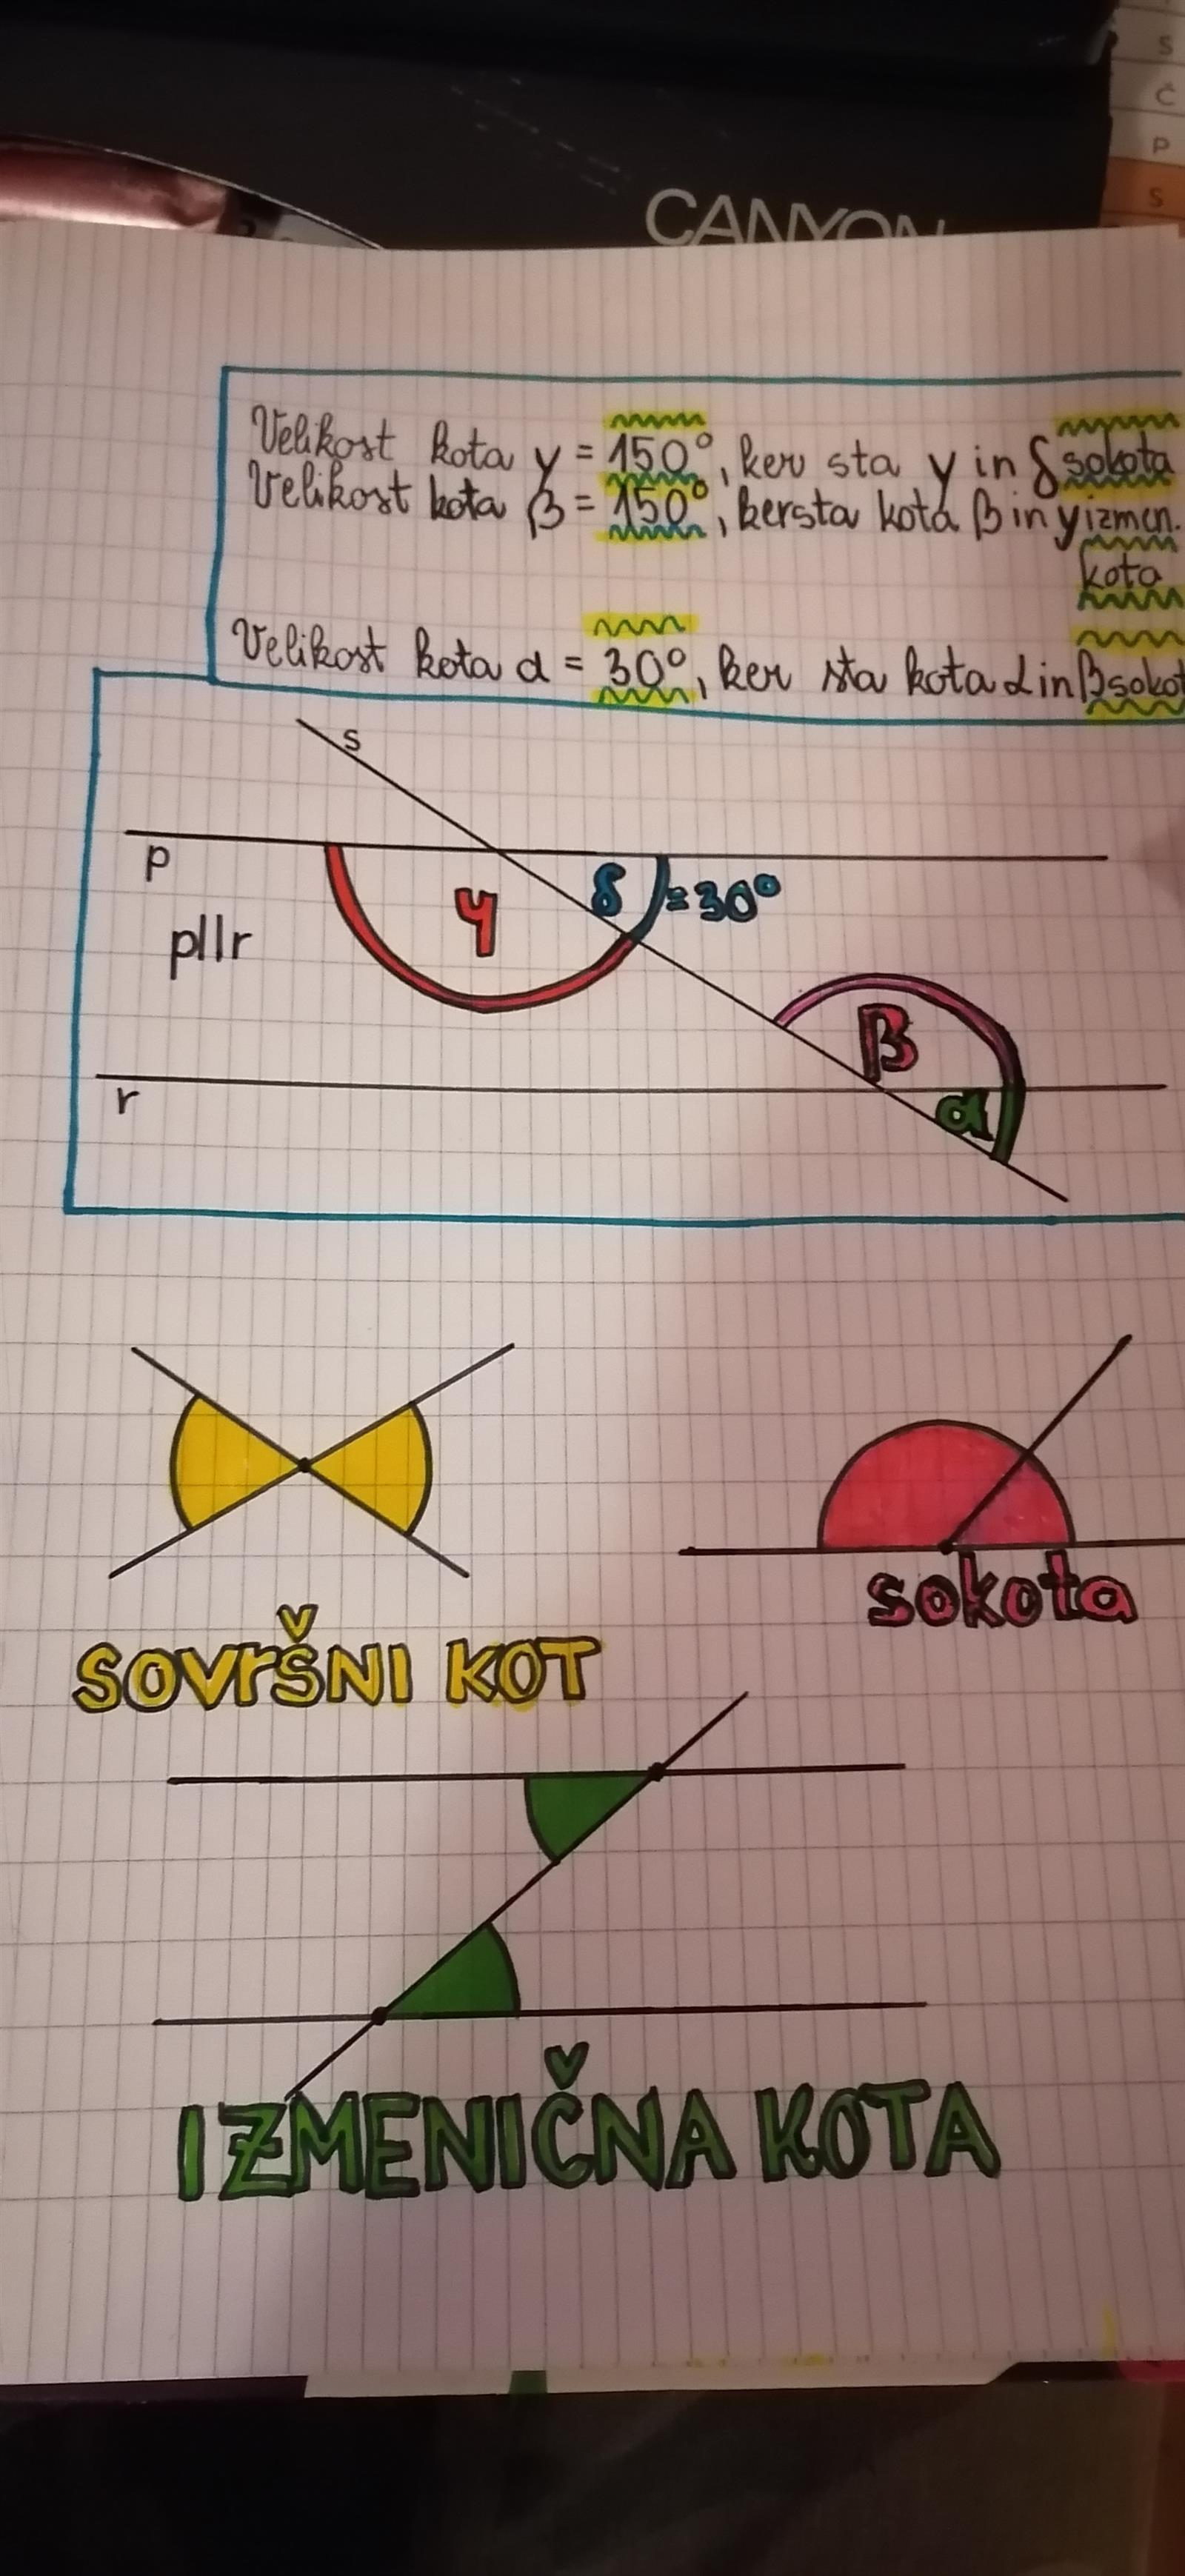 S
Č
P
S
CANYON
Velikost kota γ = 150°, ker sta γ in δ sokota
Velikost kota β = 150°, ker sta kota β in γ izmen.
kota
Velikost kota α = 30°, ker sta kota α in β sokot
s
p
γ
δ = 30°
p||r
β
r
α
SOVRŠNI KOT
sokota
IZMENIČNA KOTA